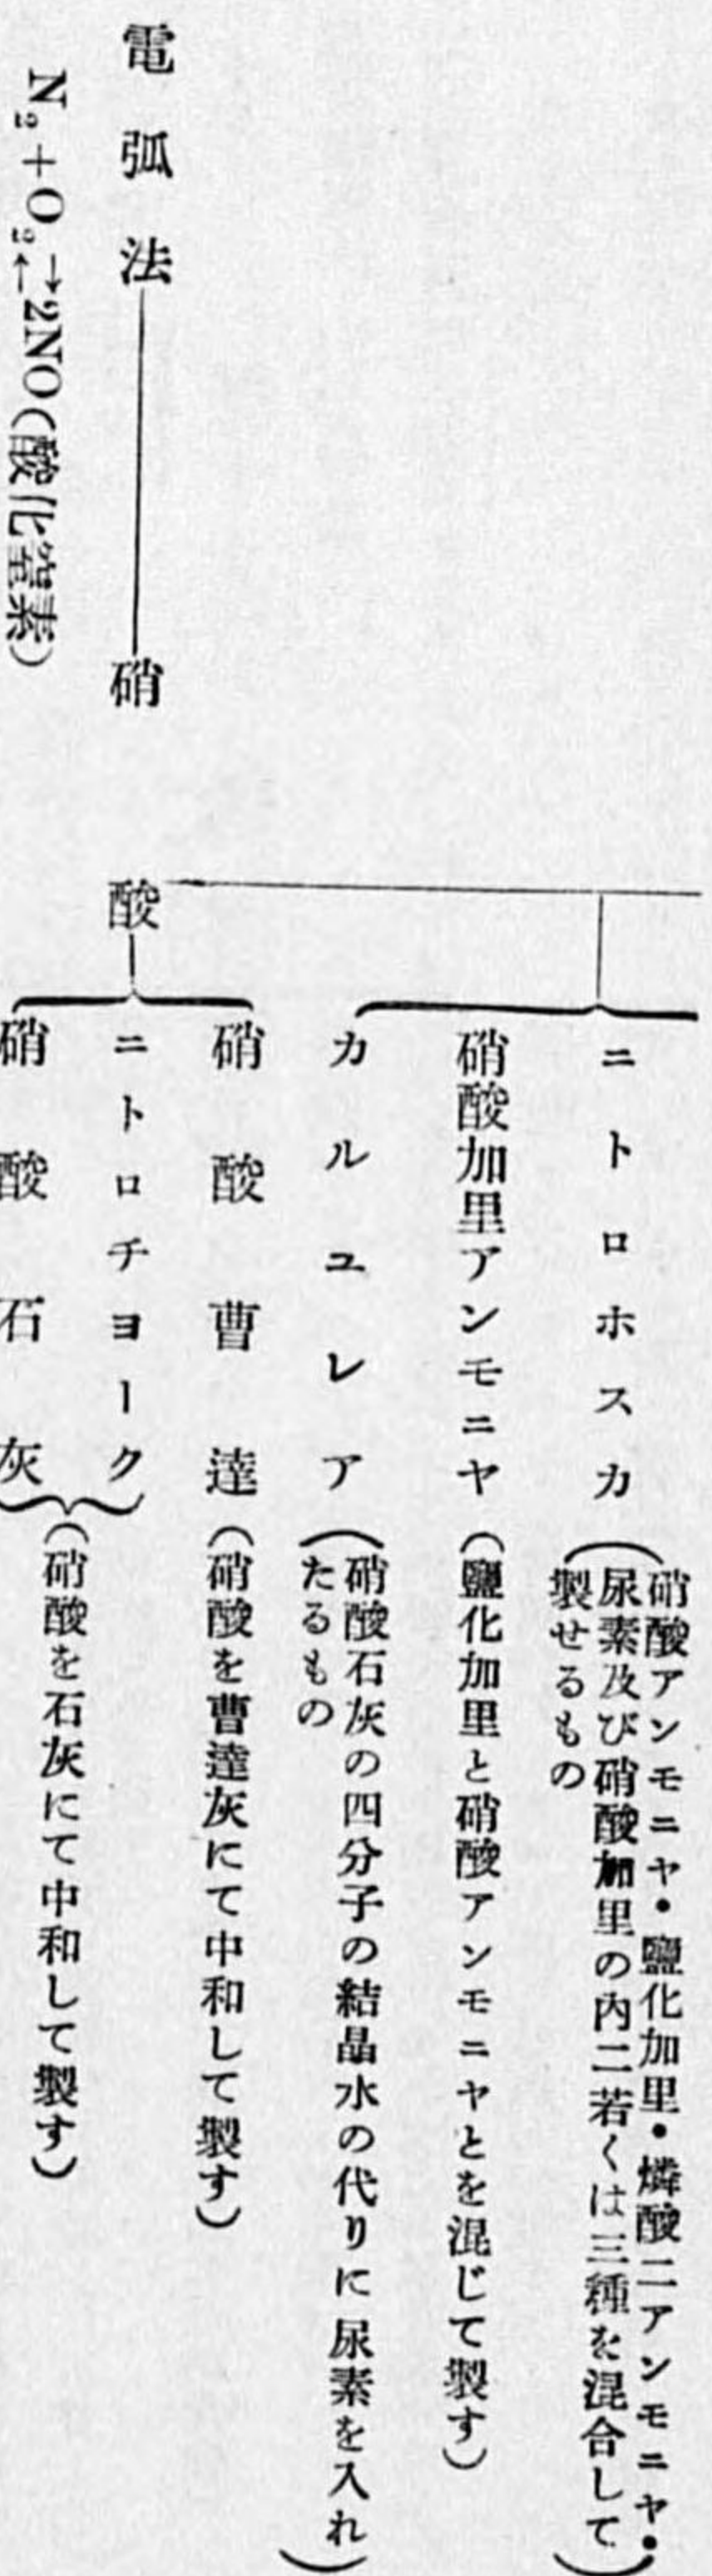 ニトロホスカ
(硝酸アンモニヤ・鹽化加里・燐酸二アンモニヤ・
尿素及び硝酸加里の內二若くは三種を混合して
製せるもの)
硝酸加里アンモニヤ
(鹽化加里と硝酸アンモニヤとを混じて製す)
カルユレア
(硝酸石灰の四分子の結晶水の代りに尿素を入れ
たるもの)
硝酸曹達
(硝酸を曹達灰にて中和して製す)
電弧法
硝酸
ニトロチョーク
硝酸石灰
(硝酸を石灰にて中和して製す)
N₂+O₂⇄2NO(酸化窒素)